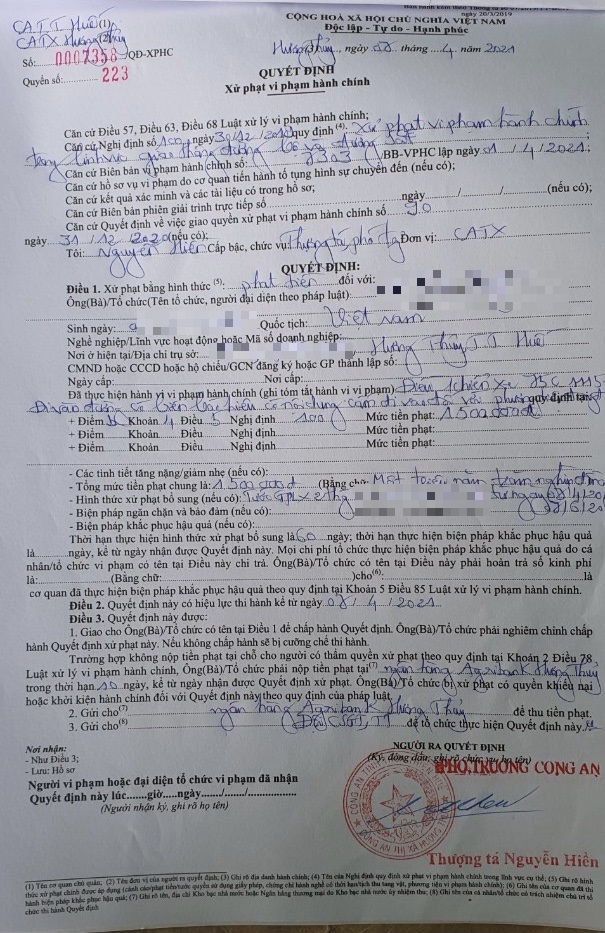 ngày 20/3/2019
C.A.T.T. Huế (1)
CỘNG HOÀ XÃ HỘI CHỦ NGHĨA VIỆT NAM
CATX Hương Thủy (2)
Độc lập - Tự do - Hạnh phúc
Số: 0007358 /QĐ-XPHC
Hương Thủy (3), ngày 08 tháng 4 năm 2021
Quyển số: 223
QUYẾT ĐỊNH
Xử phạt vi phạm hành chính
Căn cứ Điều 57, Điều 63, Điều 68 Luật xử lý vi phạm hành chính;
Căn cứ Nghị định số 100 ngày 30/12/2019 quy định (4) Xử phạt vi phạm hành chính
trong lĩnh vực giao thông đường bộ và đường sắt
Căn cứ Biên bản vi phạm hành chính số: 7303 /BB-VPHC lập ngày 01/4/2021;
Căn cứ hồ sơ vụ vi phạm do cơ quan tiến hành tố tụng hình sự chuyển đến (nếu có);
Căn cứ kết quả xác minh và các tài liệu có trong hồ sơ;
Căn cứ Biên bản phiên giải trình trực tiếp số ngày / / (nếu có);
Căn cứ Quyết định về việc giao quyền xử phạt vi phạm hành chính số 90
ngày 31/12/2020 (nếu có);
Tôi: Nguyễn Hiền Cấp bậc, chức vụ: Thượng tá, phó Đơn vị: CATX
QUYẾT ĐỊNH:
Điều 1. Xử phạt bằng hình thức (5): phạt tiền đối với:
Ông(Bà)/Tổ chức(Tên tổ chức, người đại diện theo pháp luật):
Sinh ngày: Quốc tịch: Việt Nam
Nghề nghiệp/Lĩnh vực hoạt động hoặc Mã số doanh nghiệp:
Nơi ở hiện tại/Địa chỉ trụ sở: Hương Thủy, T.T Huế
CMND hoặc CCCD hoặc hộ chiếu/GCN đăng ký hoặc GP thành lập số:
Ngày cấp: Nơi cấp:
Đã thực hiện hành vi vi phạm hành chính (ghi tóm tắt hành vi vi phạm) Điều khiển xe 75C 1115
Đi vào đường có biển báo hiệu có nội dung cấm đi vào đối với phương quy định tại:
+ Điểm Khoản 4 Điều 5 Nghị định 100 Mức tiền phạt: 1500.000đ
+ Điểm Khoản Điều Nghị định Mức tiền phạt:
+ Điểm Khoản Điều Nghị định Mức tiền phạt:
- Các tình tiết tăng nặng/giảm nhẹ (nếu có):
- Tổng mức tiền phạt chung là: 1.500.000đ (Bằng chữ: Một triệu năm trăm nghìn đồng
- Hình thức xử phạt bổ sung (nếu có): Tước GPLX 2 thg từ ngày 08/4/20
- Biện pháp ngăn chặn và bảo đảm (nếu có):
- Biện pháp khắc phục hậu quả (nếu có):
Thời hạn thực hiện hình thức xử phạt bổ sung là 60 ngày; thời hạn thực hiện biện pháp khắc phục hậu quả
là ngày, kể từ ngày nhận được Quyết định này. Mọi chi phí tổ chức thực hiện biện pháp khắc phục hậu quả do cá
nhân/tổ chức vi phạm có tên tại Điều này chi trả. Ông(Bà)/Tổ chức có tên tại Điều này phải hoàn trả số kinh phí
là: (Bằng chữ: )cho(6): là
cơ quan đã thực hiện biện pháp khắc phục hậu quả theo quy định tại Khoản 5 Điều 85 Luật xử lý vi phạm hành chính.
Điều 2. Quyết định này có hiệu lực thi hành kể từ ngày 08/4/2021
Điều 3. Quyết định này được:
1. Giao cho Ông(Bà)/Tổ chức có tên tại Điều 1 để chấp hành Quyết định. Ông(Bà)/Tổ chức phải nghiêm chỉnh chấp
hành Quyết định xử phạt này. Nếu không chấp hành sẽ bị cưỡng chế thi hành.
Trường hợp không nộp tiền phạt tại chỗ cho người có thẩm quyền xử phạt theo quy định tại Khoản 2 Điều 78,
Luật xử lý vi phạm hành chính, Ông(Bà)/Tổ chức phải nộp tiền phạt tại(7) ngân hàng Agribank Hương Thủy
trong thời hạn 10 ngày, kể từ ngày nhận được Quyết định xử phạt. Ông(Bà)/Tổ chức bị xử phạt có quyền khiếu nại
hoặc khởi kiện hành chính đối với Quyết định này theo quy định của pháp luật.
2. Gửi cho(7) ngân hàng Agribank Hương Thủy để thu tiền phạt.
3. Gửi cho(8) Đội CSGT, TT để tổ chức thực hiện Quyết định này.
Nơi nhận:
- Như Điều 3;
- Lưu: Hồ sơ
NGƯỜI RA QUYẾT ĐỊNH
(Ký, đóng dấu, ghi rõ chức vụ, họ tên)
PHÓ TRƯỞNG CÔNG AN
Người vi phạm hoặc đại diện tổ chức vi phạm đã nhận
Quyết định này lúc.......giờ.....ngày....../....../............
(Người nhận ký, ghi rõ họ tên)
Thượng tá Nguyễn Hiền
(1) Tên cơ quan chủ quản; (2) Tên đơn vị của người ra quyết định; (3) Ghi rõ địa danh hành chính; (4) Tên của Nghị định quy định xử phạt vi phạm hành chính trong lĩnh vực cụ thể; (5) Ghi rõ hình